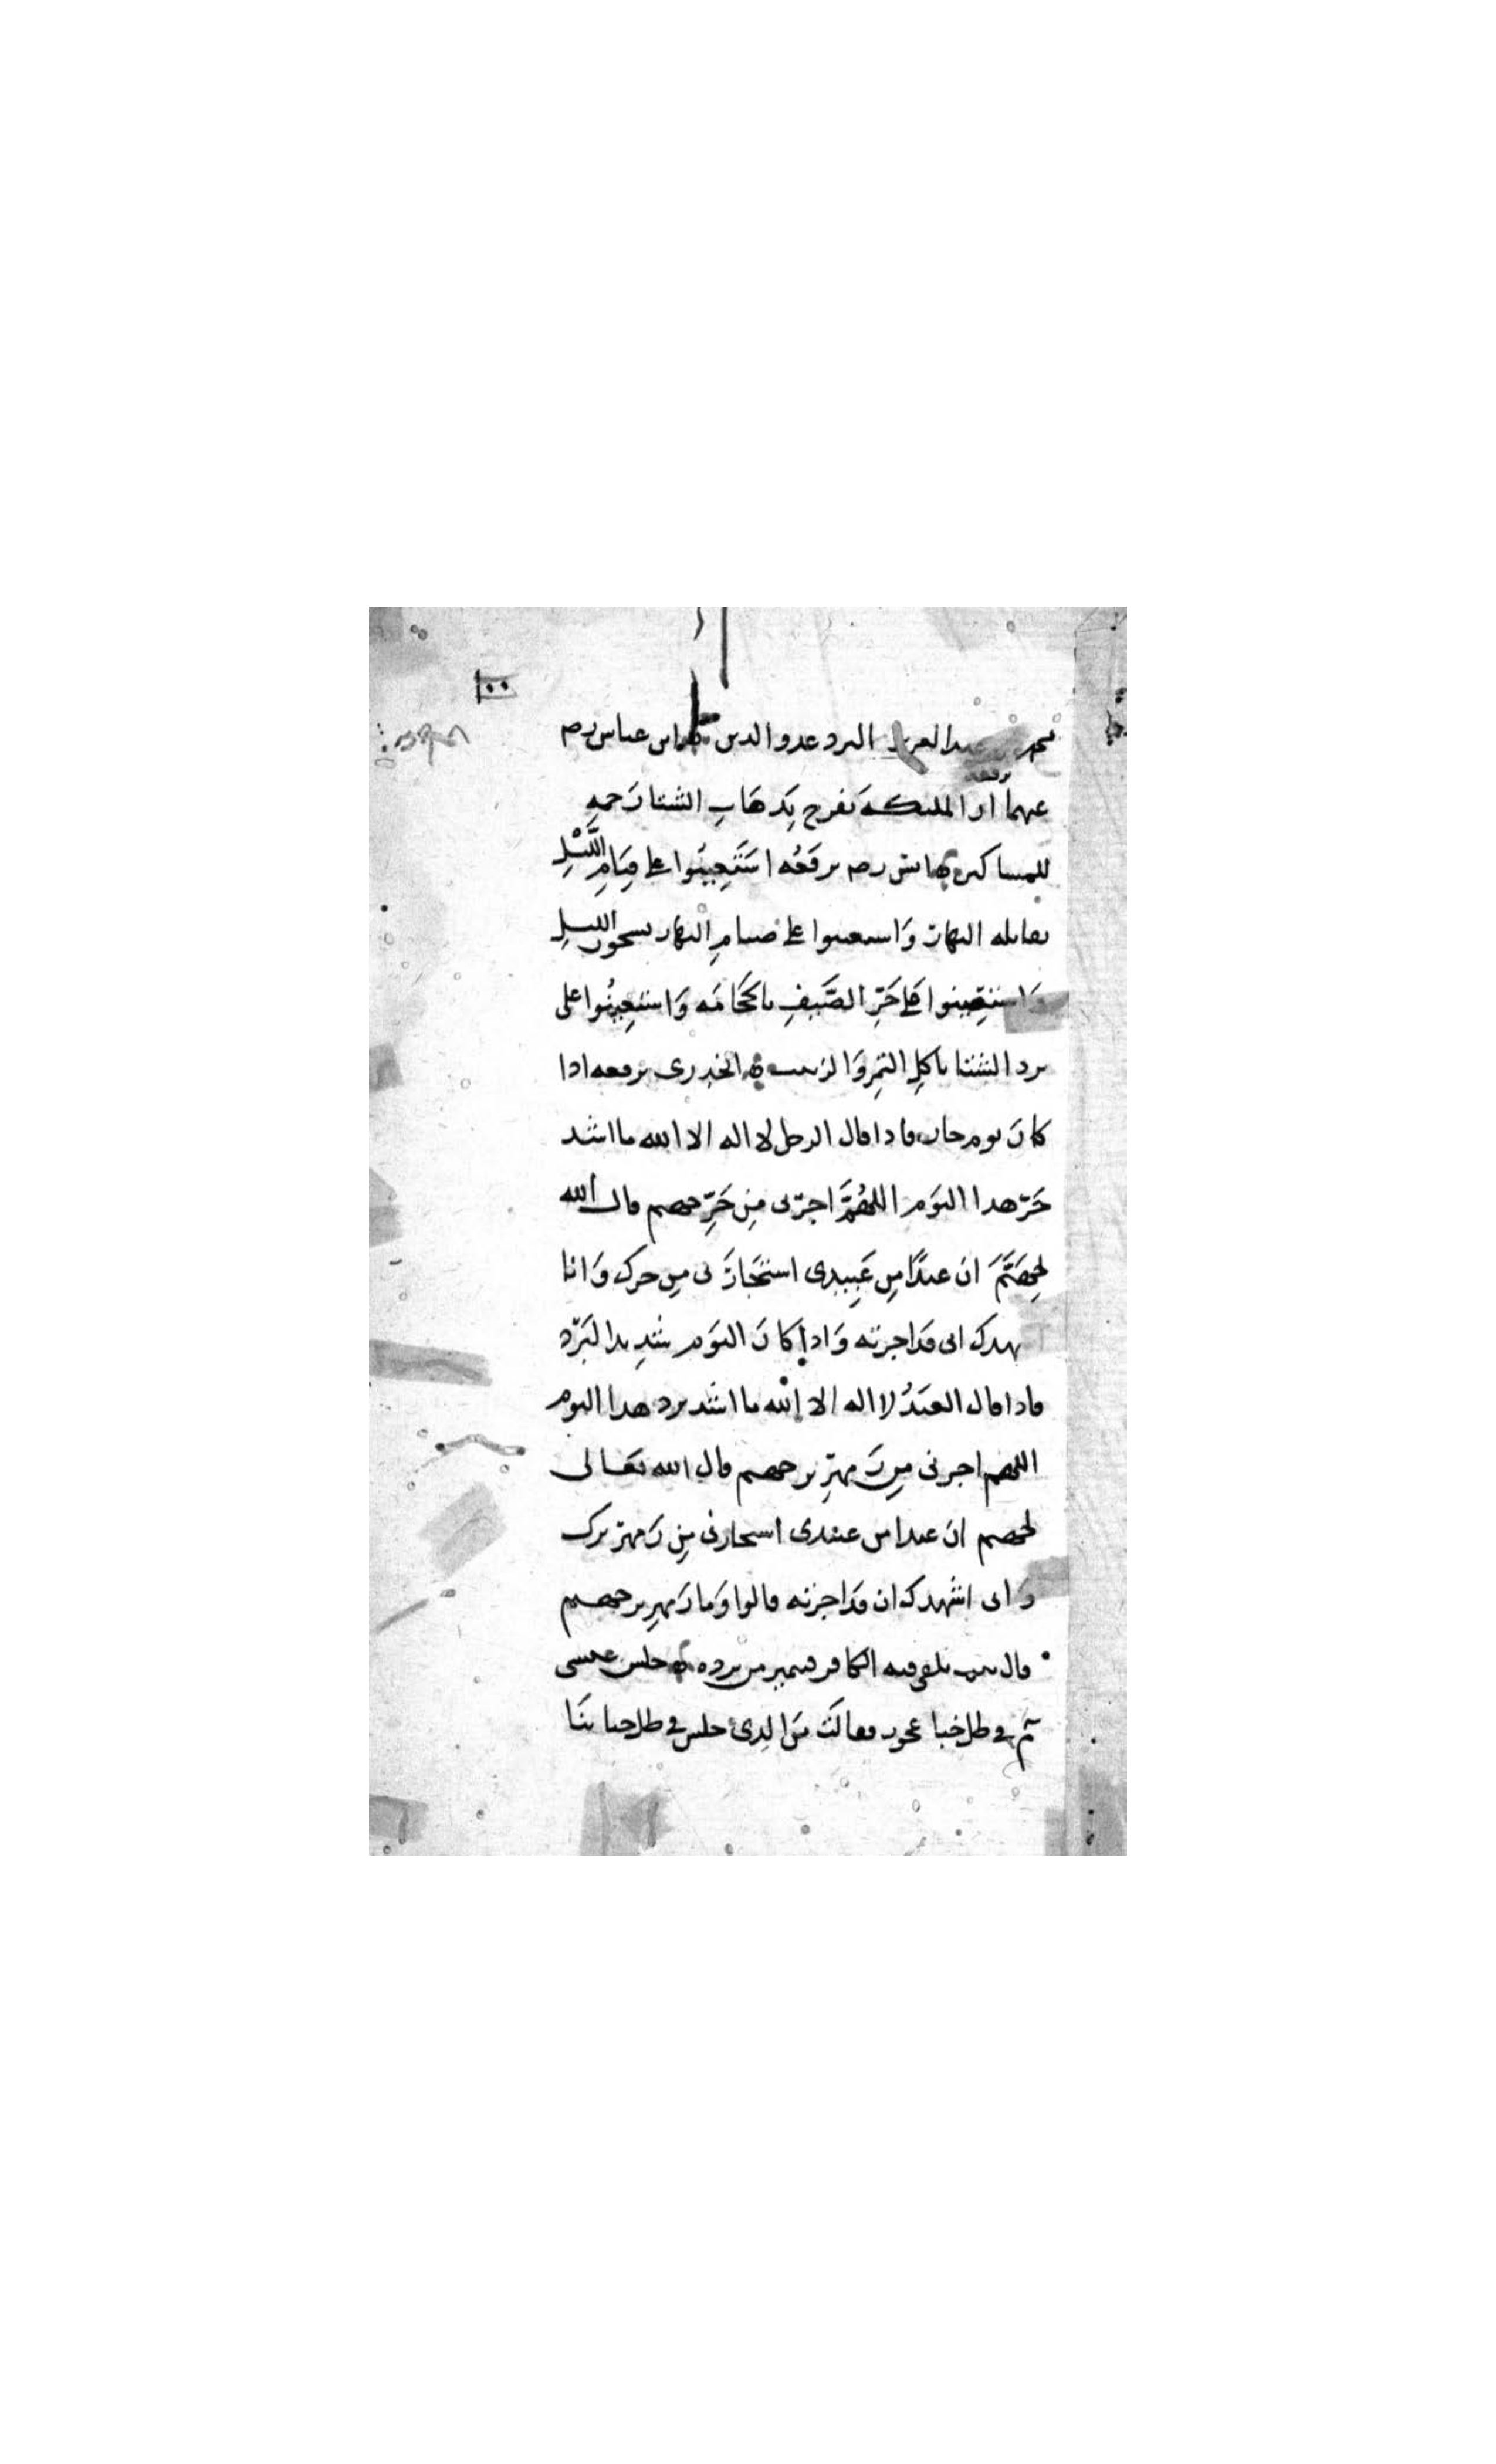 ١٠٠
عمر بن عبد العزيز البرد عدو الدين ابن عباس رصه
يرفعه
عنهما ان الملئكة تفرح بذهاب الشتا رَحمه
للمساكين انس رصه يرفعه استعينوا على قيام الليل
بقايلة النهار واستعينوا على صيام النهار بسحور الليل
واستعينوا على حر الصيف بالحجامة واستعينوا على
برد الشتا باكل التمر والزبيب الخدري يرفعه اذا
كان يوم حار فاذا قال الرجل لا اله الا الله ما اشد
حر هذا اليوم اللهم اجرني من حر جهنم قال الله
لجهنم ان عبدا من عبيدي استجار ني من حرك وانا
اشهدك اني قد اجرته واذا كان اليوم شديد البرد
فاذا قال العبد لا اله الا الله ما اشد برد هذا اليوم
اللهم اجرني من زمهرير جهنم قال الله تعالى
لجهنم ان عبدا من عبيدي استجارني من زمهريرك
واني اشهدك ان قد اجرته قالوا وما زمهرير جهنم
قال بيت يلقى فيه الكافر فيتميز من برده جلس عيسى
عم في ظل خبا عجوز فقالت من الذي جلس في ظل خبائنا